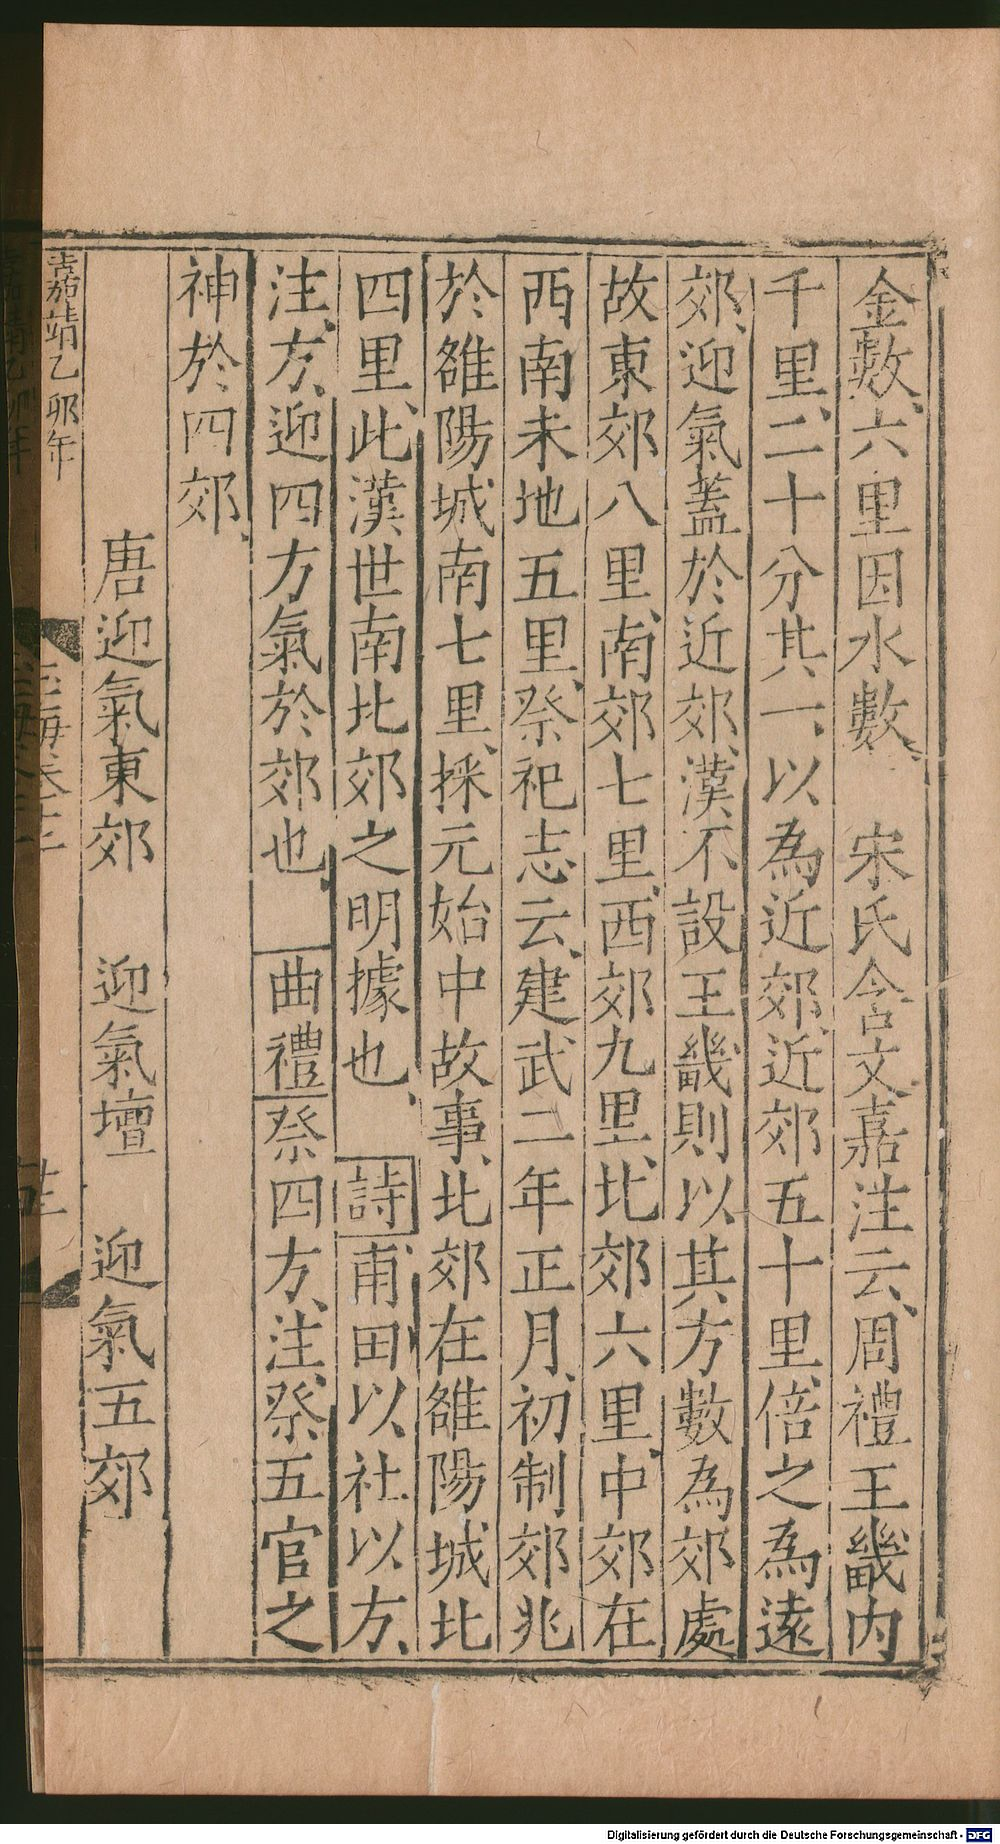 金數、六里因水數、　宋氏含文嘉注云、周禮王畿内
千里、二十分其一、以為近郊、近郊五十里、倍之為遠
郊、迎氣蓋於近郊、漢不設王畿、則以其方數為郊處
故東郊八里、南郊七里、西郊九里、北郊六里、中郊在
西南未地五里、祭祀志云、建武二年正月、初制郊兆
於雒陽城南七里、採元始中故事、北郊在雒陽城北
四里、此漢世南北郊之明據也、　詩甫田以社以方、
注、方、迎四方氣於郊也、　曲禮祭四方、注、祭五官之
神於四郊、
唐迎氣東郊　迎氣壇　迎氣五郊
嘉靖乙卯年
Digitalisierung gefördert durch die Deutsche Forschungsgemeinschaft - DFG